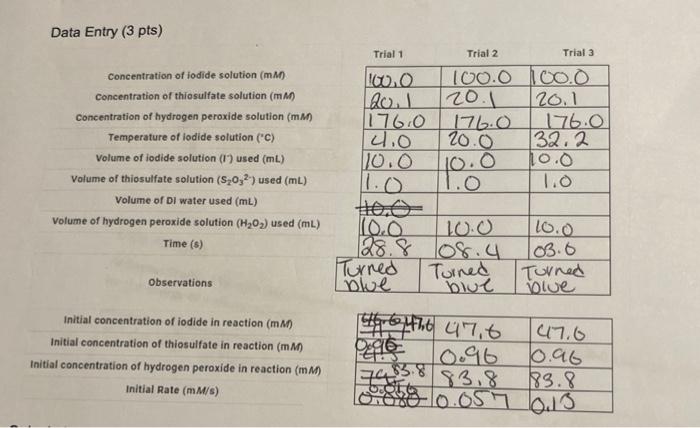 Data Entry (3 pts)
Trial 1 Trial 2 Trial 3
Concentration of iodide solution (mM) 100.0 100.0 100.0
Concentration of thiosulfate solution (mM) 20.1 20.1 20.1
Concentration of hydrogen peroxide solution (mM) 176.0 176.0 176.0
Temperature of iodide solution (°C) 4.0 20.0 32.2
Volume of iodide solution (I⁻) used (mL) 10.0 10.0 10.0
Volume of thiosulfate solution (S₂O₃²⁻) used (mL) 1.0 1.0 1.0
Volume of DI water used (mL) 10.0
Volume of hydrogen peroxide solution (H₂O₂) used (mL) 10.0 10.0 10.0
Time (s) 28.8 08.4 03.6
Observations Turned blue Turned blue Turned blue
Initial concentration of iodide in reaction (mM) 47.6 47.6 47.6
Initial concentration of thiosulfate in reaction (mM) 0.96 0.96 0.96
Initial concentration of hydrogen peroxide in reaction (mM) 83.8 83.8 83.8
Initial Rate (mM/s) 0.057 0.13